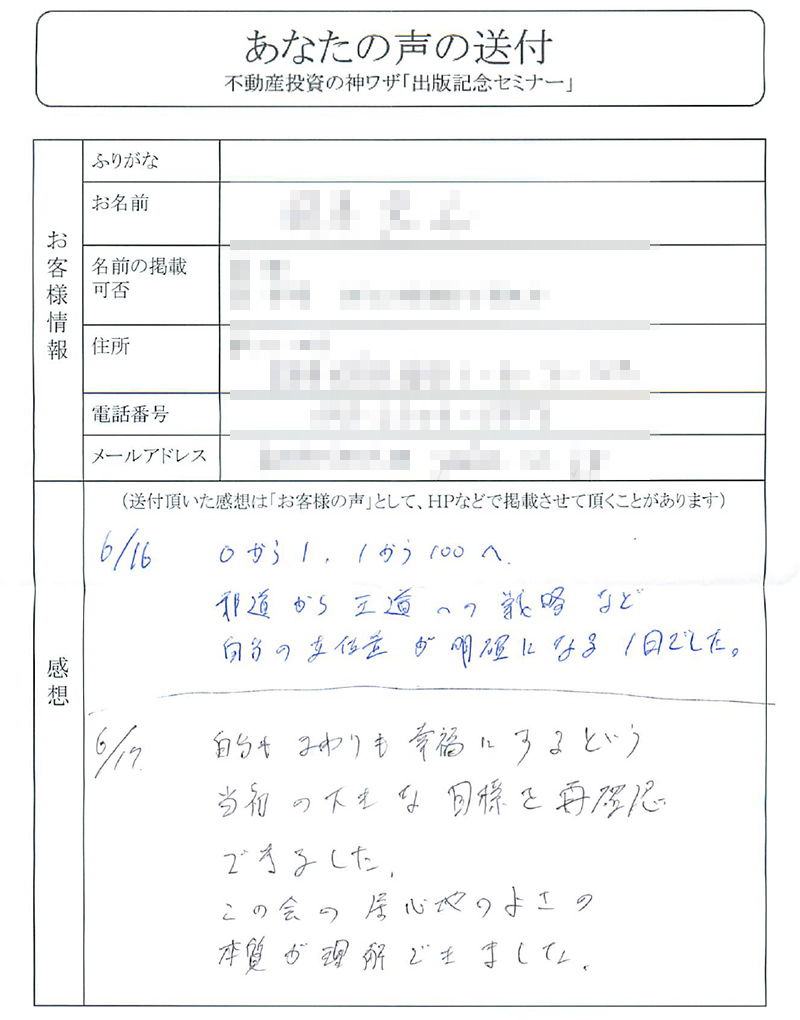 あなたの声の送付
不動産投資の神ワザ「出版記念セミナー」
お客様情報
ふりがな
お名前
名前の掲載
可否
住所
電話番号
メールアドレス
感想
(送付頂いた感想は「お客様の声」として、HPなどで掲載させて頂くことがあります)
6/16 0から1、1から100へ.
邪道から王道への戦略など
自分の立位置が明確になる1日でした。
6/17. 自分もまわりも幸福にするという
当初の大きな目標を再確認
できました.
この会の居心地のよさの
本質が理解できました.